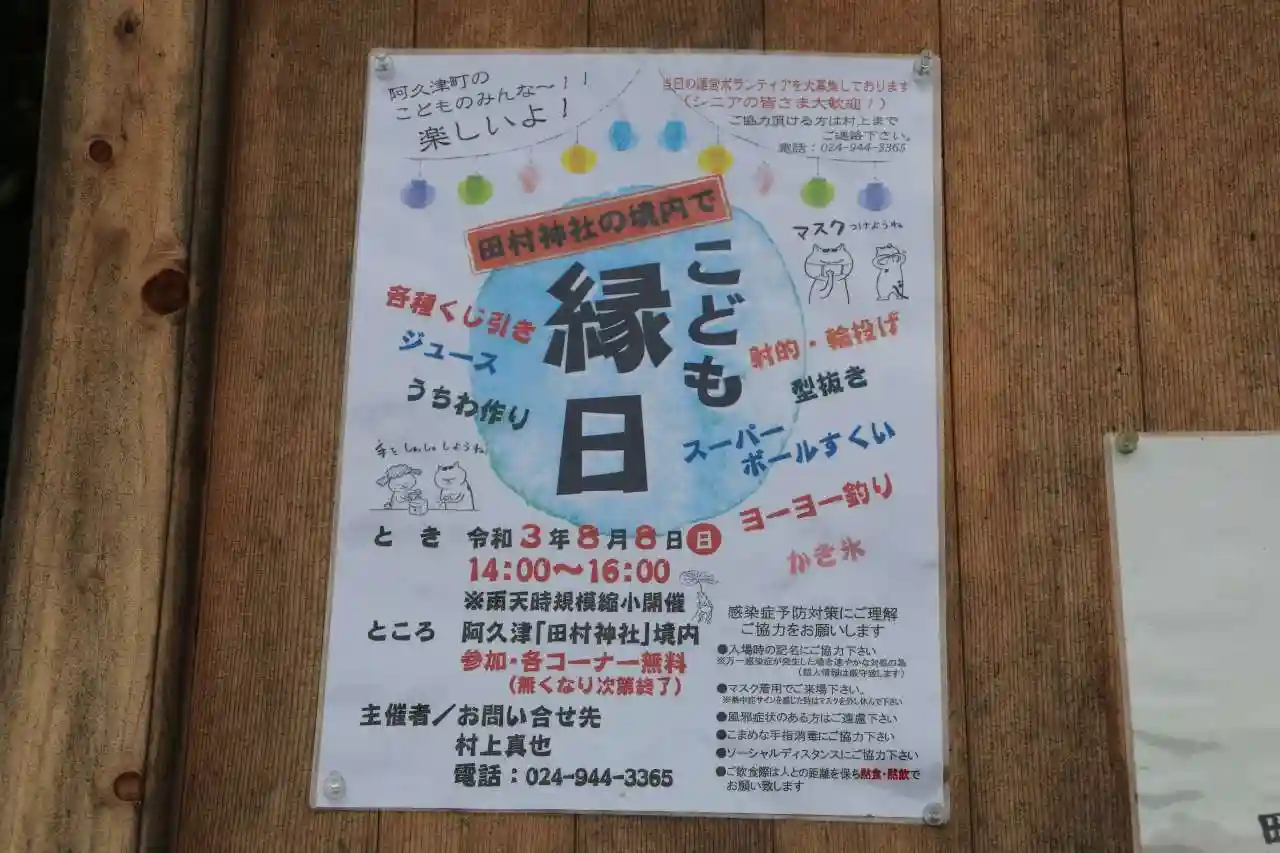 阿久津町の
こどものみんな〜！！
楽しいよ！
当日の運営ボランティアを大募集しております
（シニアの皆さま大歓迎！）
ご協力頂ける方は村上まで
ご連絡下さい。
電話：024-944-3365
田村神社の境内で
こども
縁日
マスクつけようね
各種くじ引き
ジュース
うちわ作り
射的・輪投げ
型抜き
スーパー
ボールすくい
ヨーヨー釣り
かき氷
とき 令和3年8月8日日
14:00〜16:00
※雨天時規模縮小開催
ところ 阿久津「田村神社」境内
参加・各コーナー無料
（無くなり次第終了）
主催者／お問い合せ先
村上真也
電話：024-944-3365
感染症予防対策にご理解
ご協力をお願いします
●入場時の記名にご協力下さい
※万一感染症が発生した場合速やかな対処の為
（個人情報は厳守致します）
●マスク着用でご来場下さい。
※熱中症サインを感じた時はマスクを外し休んで下さい
●風邪症状のある方はご遠慮下さい
●こまめな手指消毒にご協力下さい
●ソーシャルディスタンスにご協力下さい
●ご飲食際は人との距離を保ち黙食・黙飲で
お願い致します